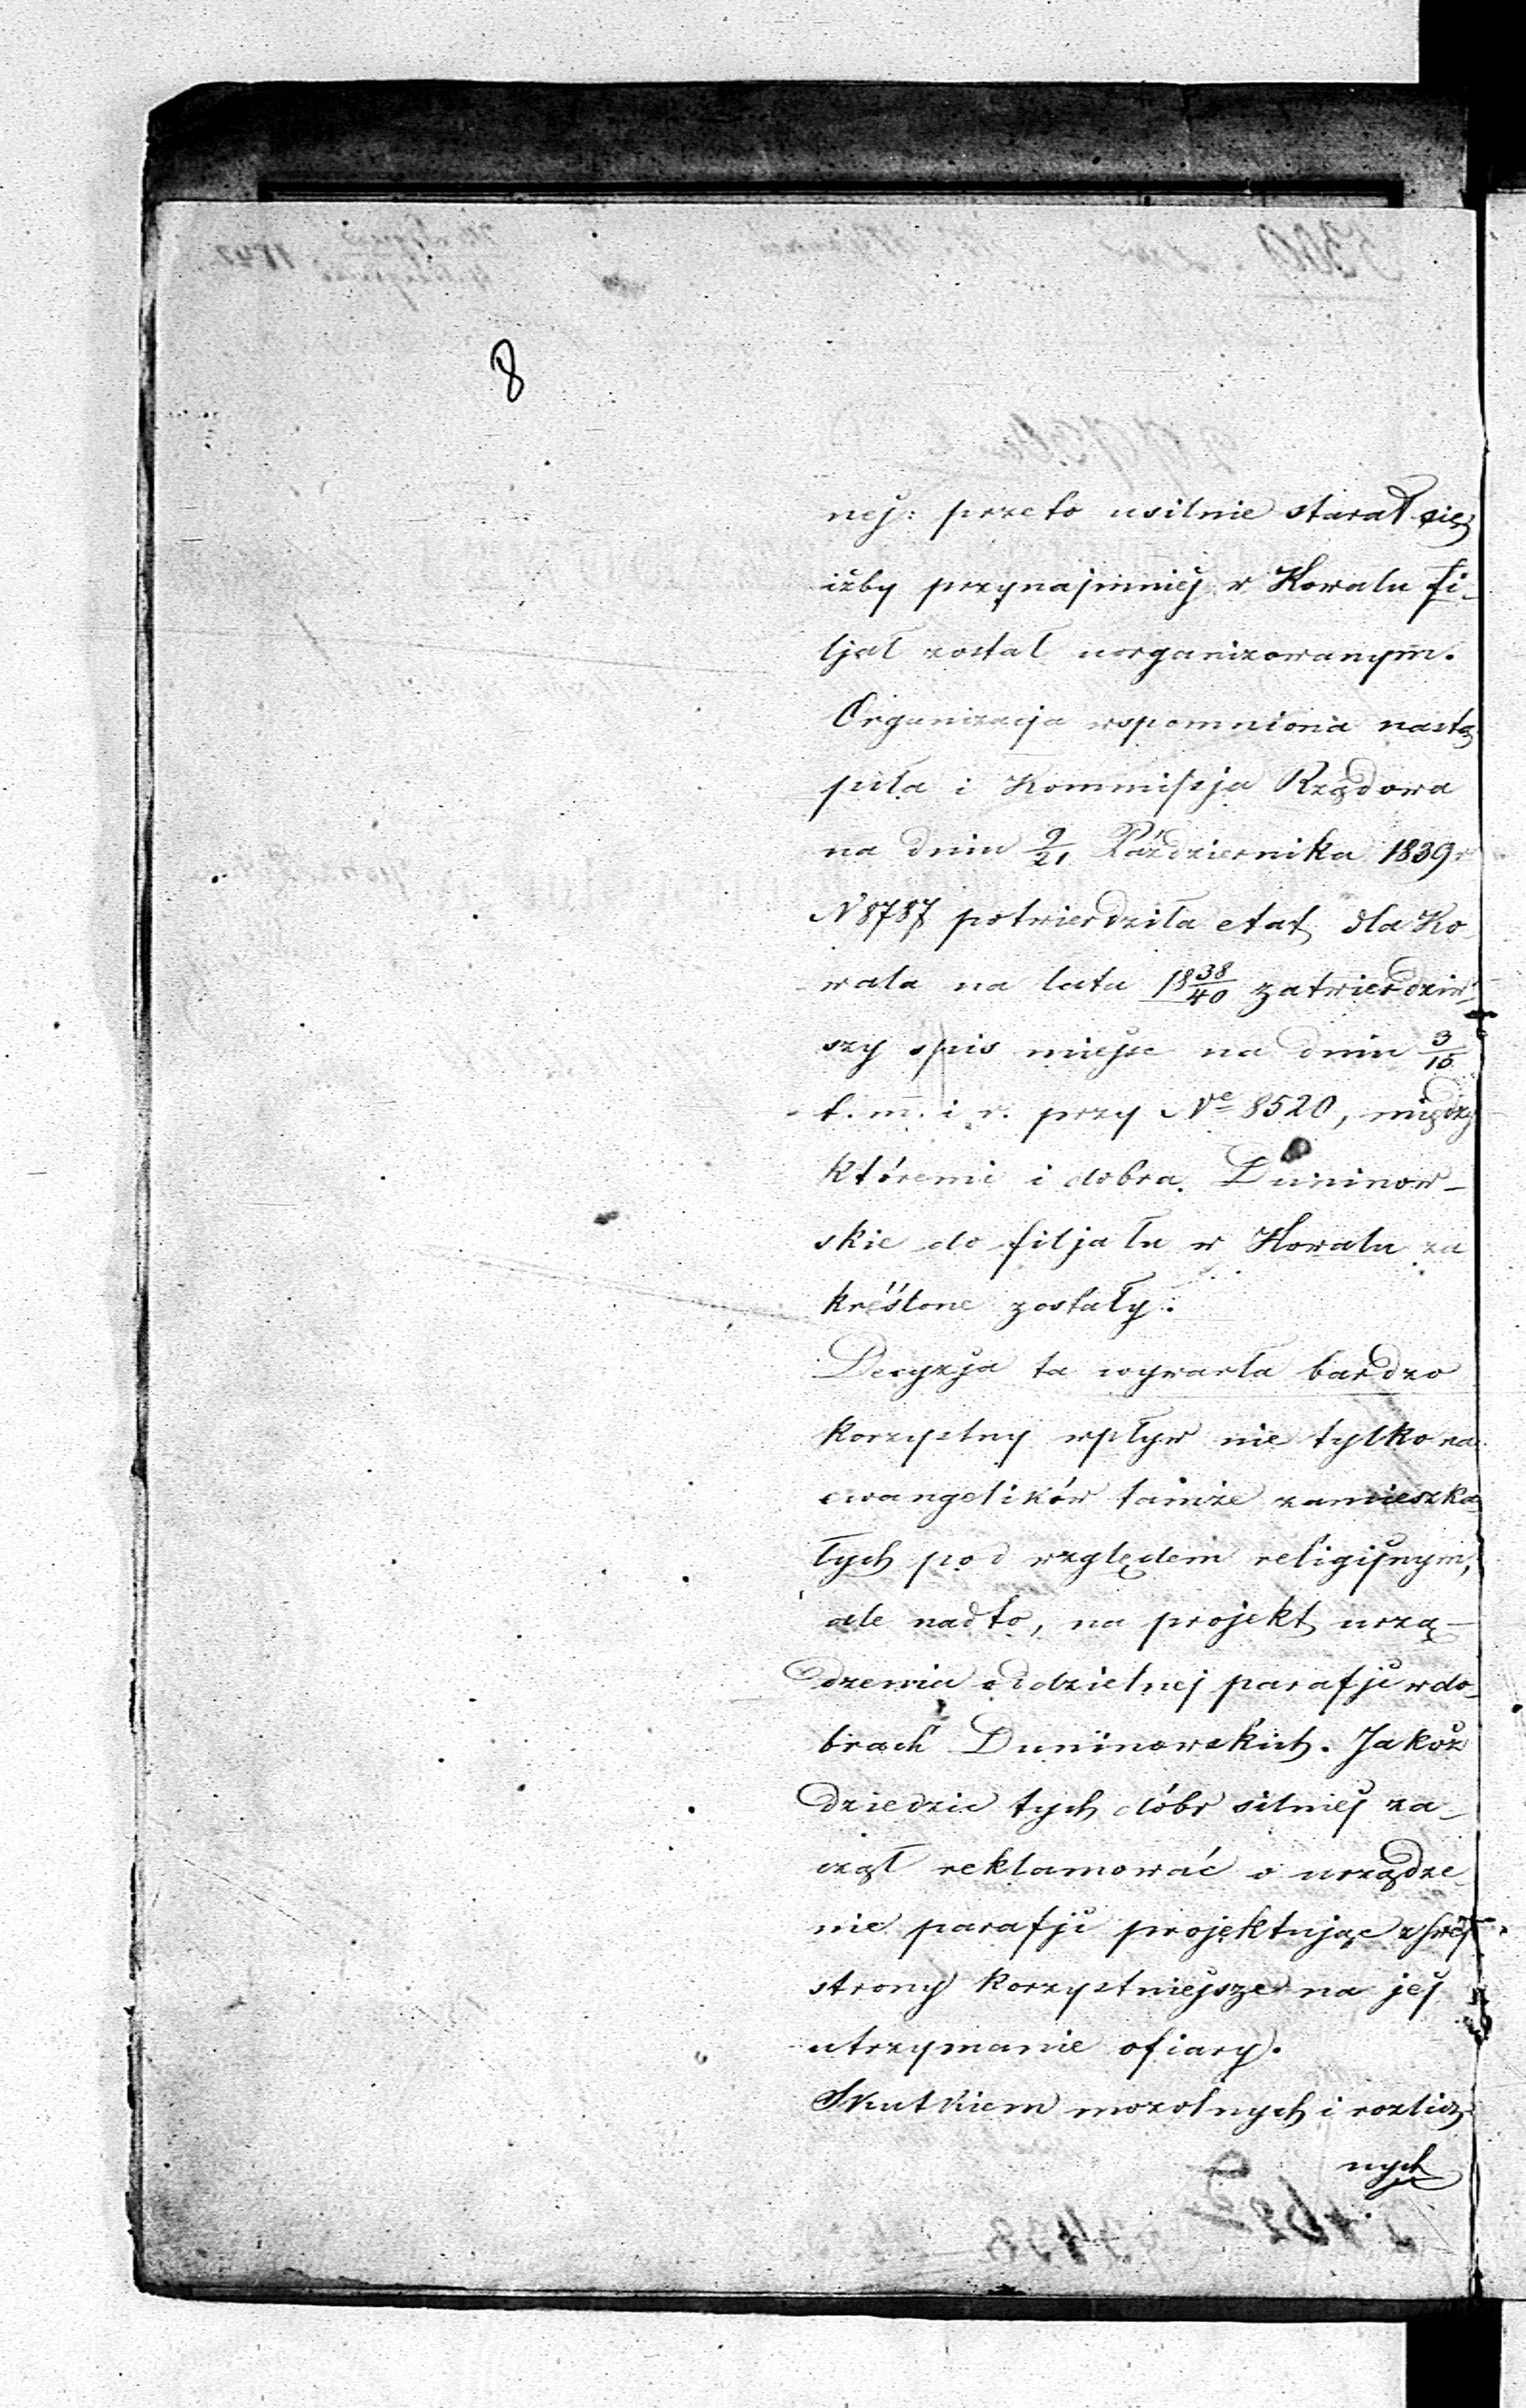 8
nej: przeto usilnie starał się
iżby przynajmniéj w Kowalu fi-
ljał został uorganizowanym.
Organizacija wspomniona nastą
piła i Kommissja Rządowa
na dniu 9/21 Października 1839 r
N 8787 potwierdziła etat dla Ko-
wala na lata 18 38/40 zatwierdziw-
szy spis miejsc na dniu 3/15
t. m. i r. przy Nº 8520, między
któremi i dobra Duninow-
skie do filjału w Kowalu za
kréślone zostały.
Decyzja ta wywarła bardzo
korzystny wpływ nie tylko na
ewangelików tamże zamieszka
łych pod względem religijnym,
ale nadto, na projekt urzą-
dzenia oddzielnej parafji w do-
brach Duninowskich. Jakoż
dziedzic tych dóbr silniéj za-
czął reklamować o urządze-
nie parafji projektując z swéj
strony korzystniejsze na jéj
utrzymanie ofiary.
Skutkiem mozolnych i rozlicz
nych